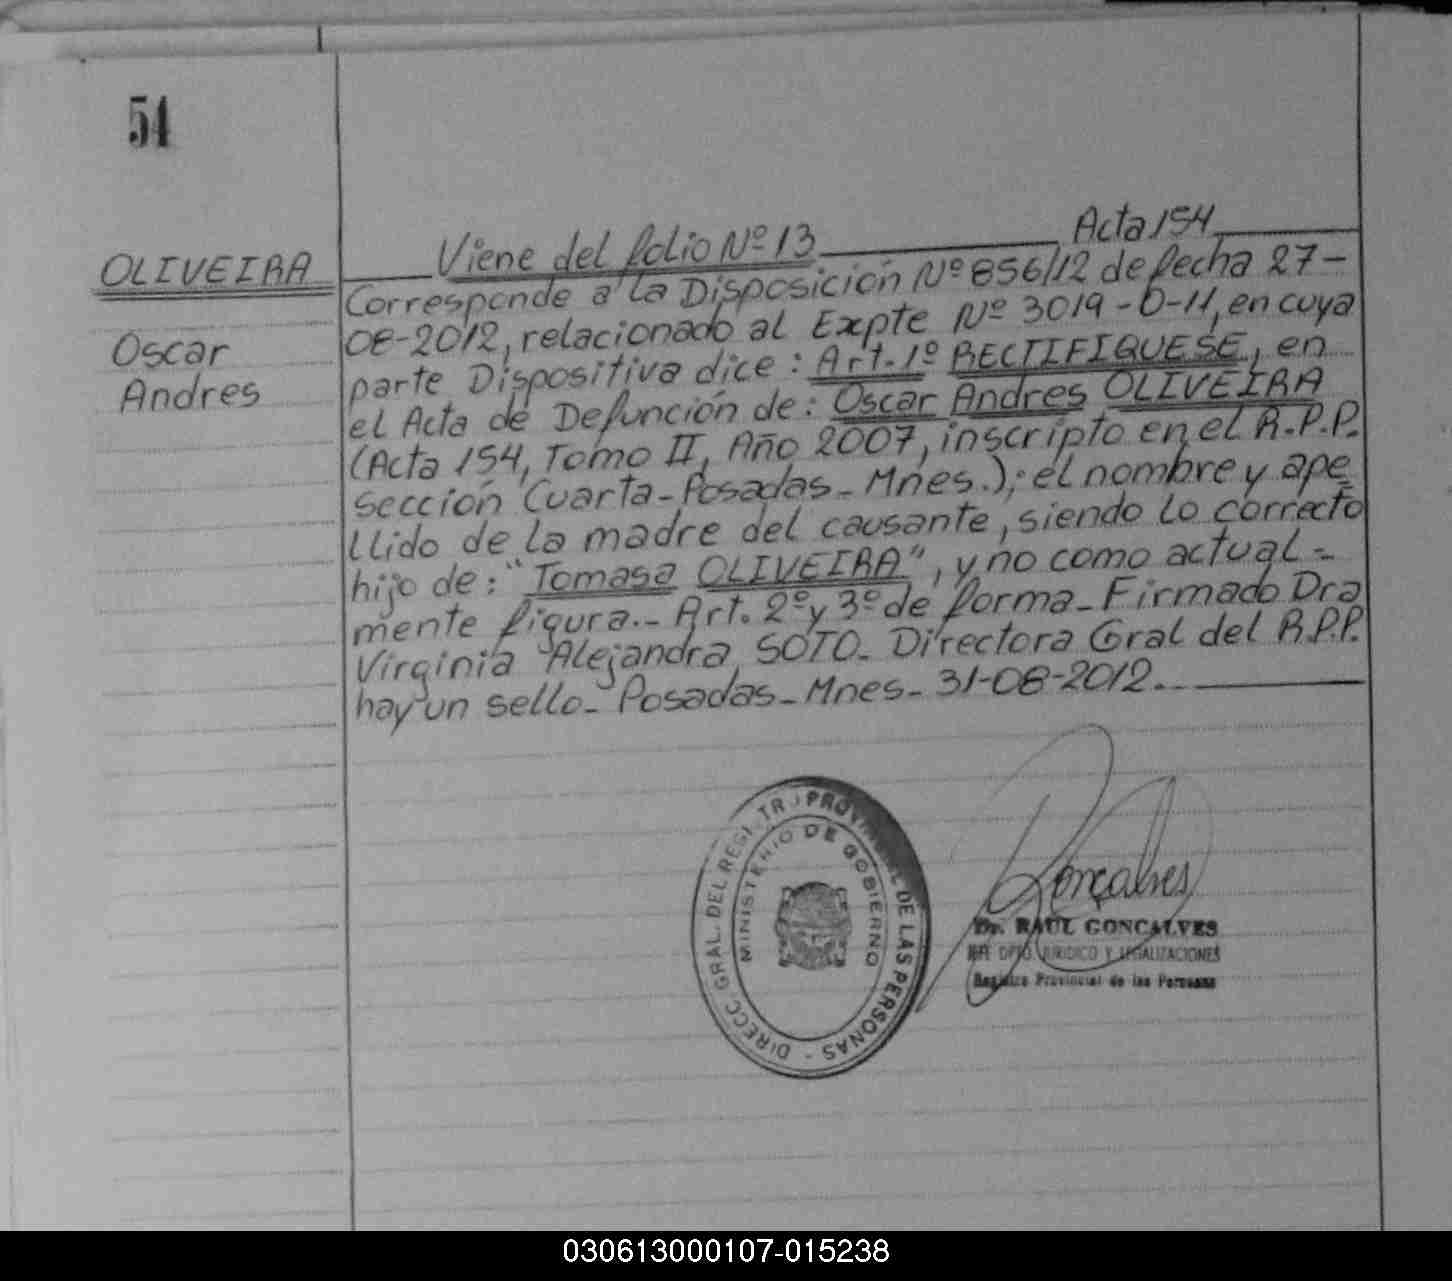 54
OLIVEIRA
Oscar
Andres
Viene del folio Nº 13 Acta 154
Corresponde a la Disposición Nº 856/12 de fecha 27-
08-2012, relacionado al Expte Nº 3019-O-11, en cuya
parte Dispositiva dice: Art.1º RECTIFIQUESE, en
el Acta de Defunción de: Oscar Andres OLIVEIRA
(Acta 154, Tomo II, Año 2007, inscripto en el R.P.P.
sección Cuarta-Posadas-Mnes.); el nombre y ape
llido de la madre del causante, siendo lo correcto
hijo de: "Tomasa OLIVEIRA", y no como actual-
mente figura.- Art. 2º y 3º de forma-Firmado Dra
Virginia Alejandra SOTO-Directora Gral del R.P.P.
hay un sello-Posadas-Mnes-31-08-2012.-
DIRECC. GRAL. DEL REGISTRO PROVINCIAL DE LAS PERSONAS -
MINISTERIO DE GOBIERNO
Gonçalves
Dr. RAUL GONCALVES
JEFE DPTO. JURIDICO Y LEGALIZACIONES
Registro Provincial de las Personas
030613000107-015238